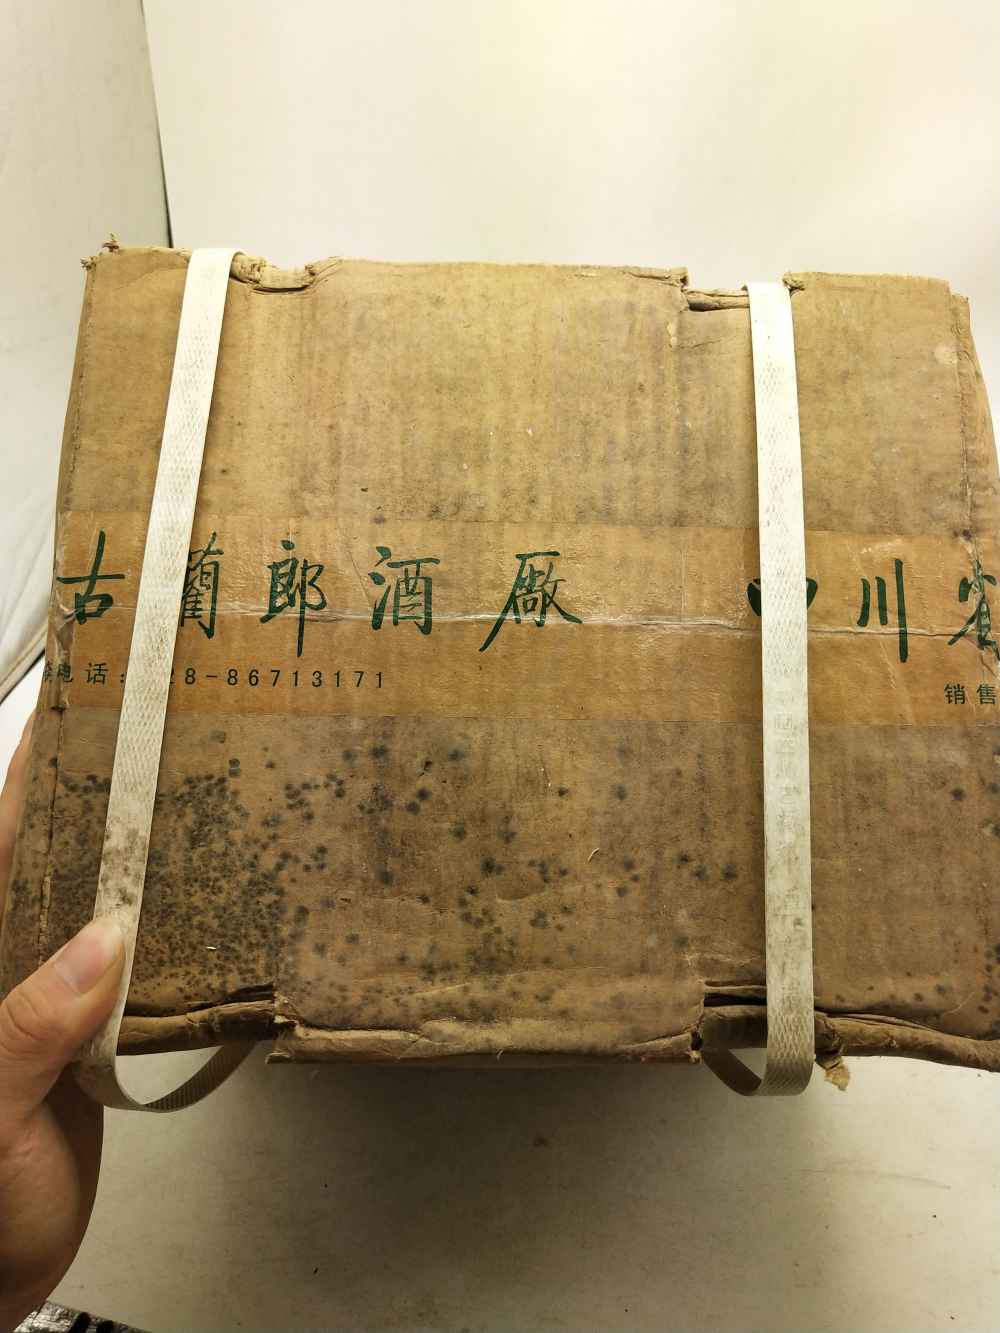 古蔺郎酒厰 四川省
电话: 28-86713171 销售